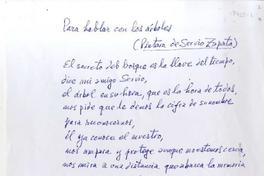 Para hablar con los árboles
(Pintura de Servio Zapata)
El secreto del bosque es la llave del tiempo,
dice mi amigo Servio,
el árbol en su hora, que es la hora de todos,
nos pide que le demos la cifra de su nombre
para reconocernos,
él ya conoce el nuestro,
nos ampara y protege aunque no estemos cerca,
nos mira a una distancia que abarca la memoria